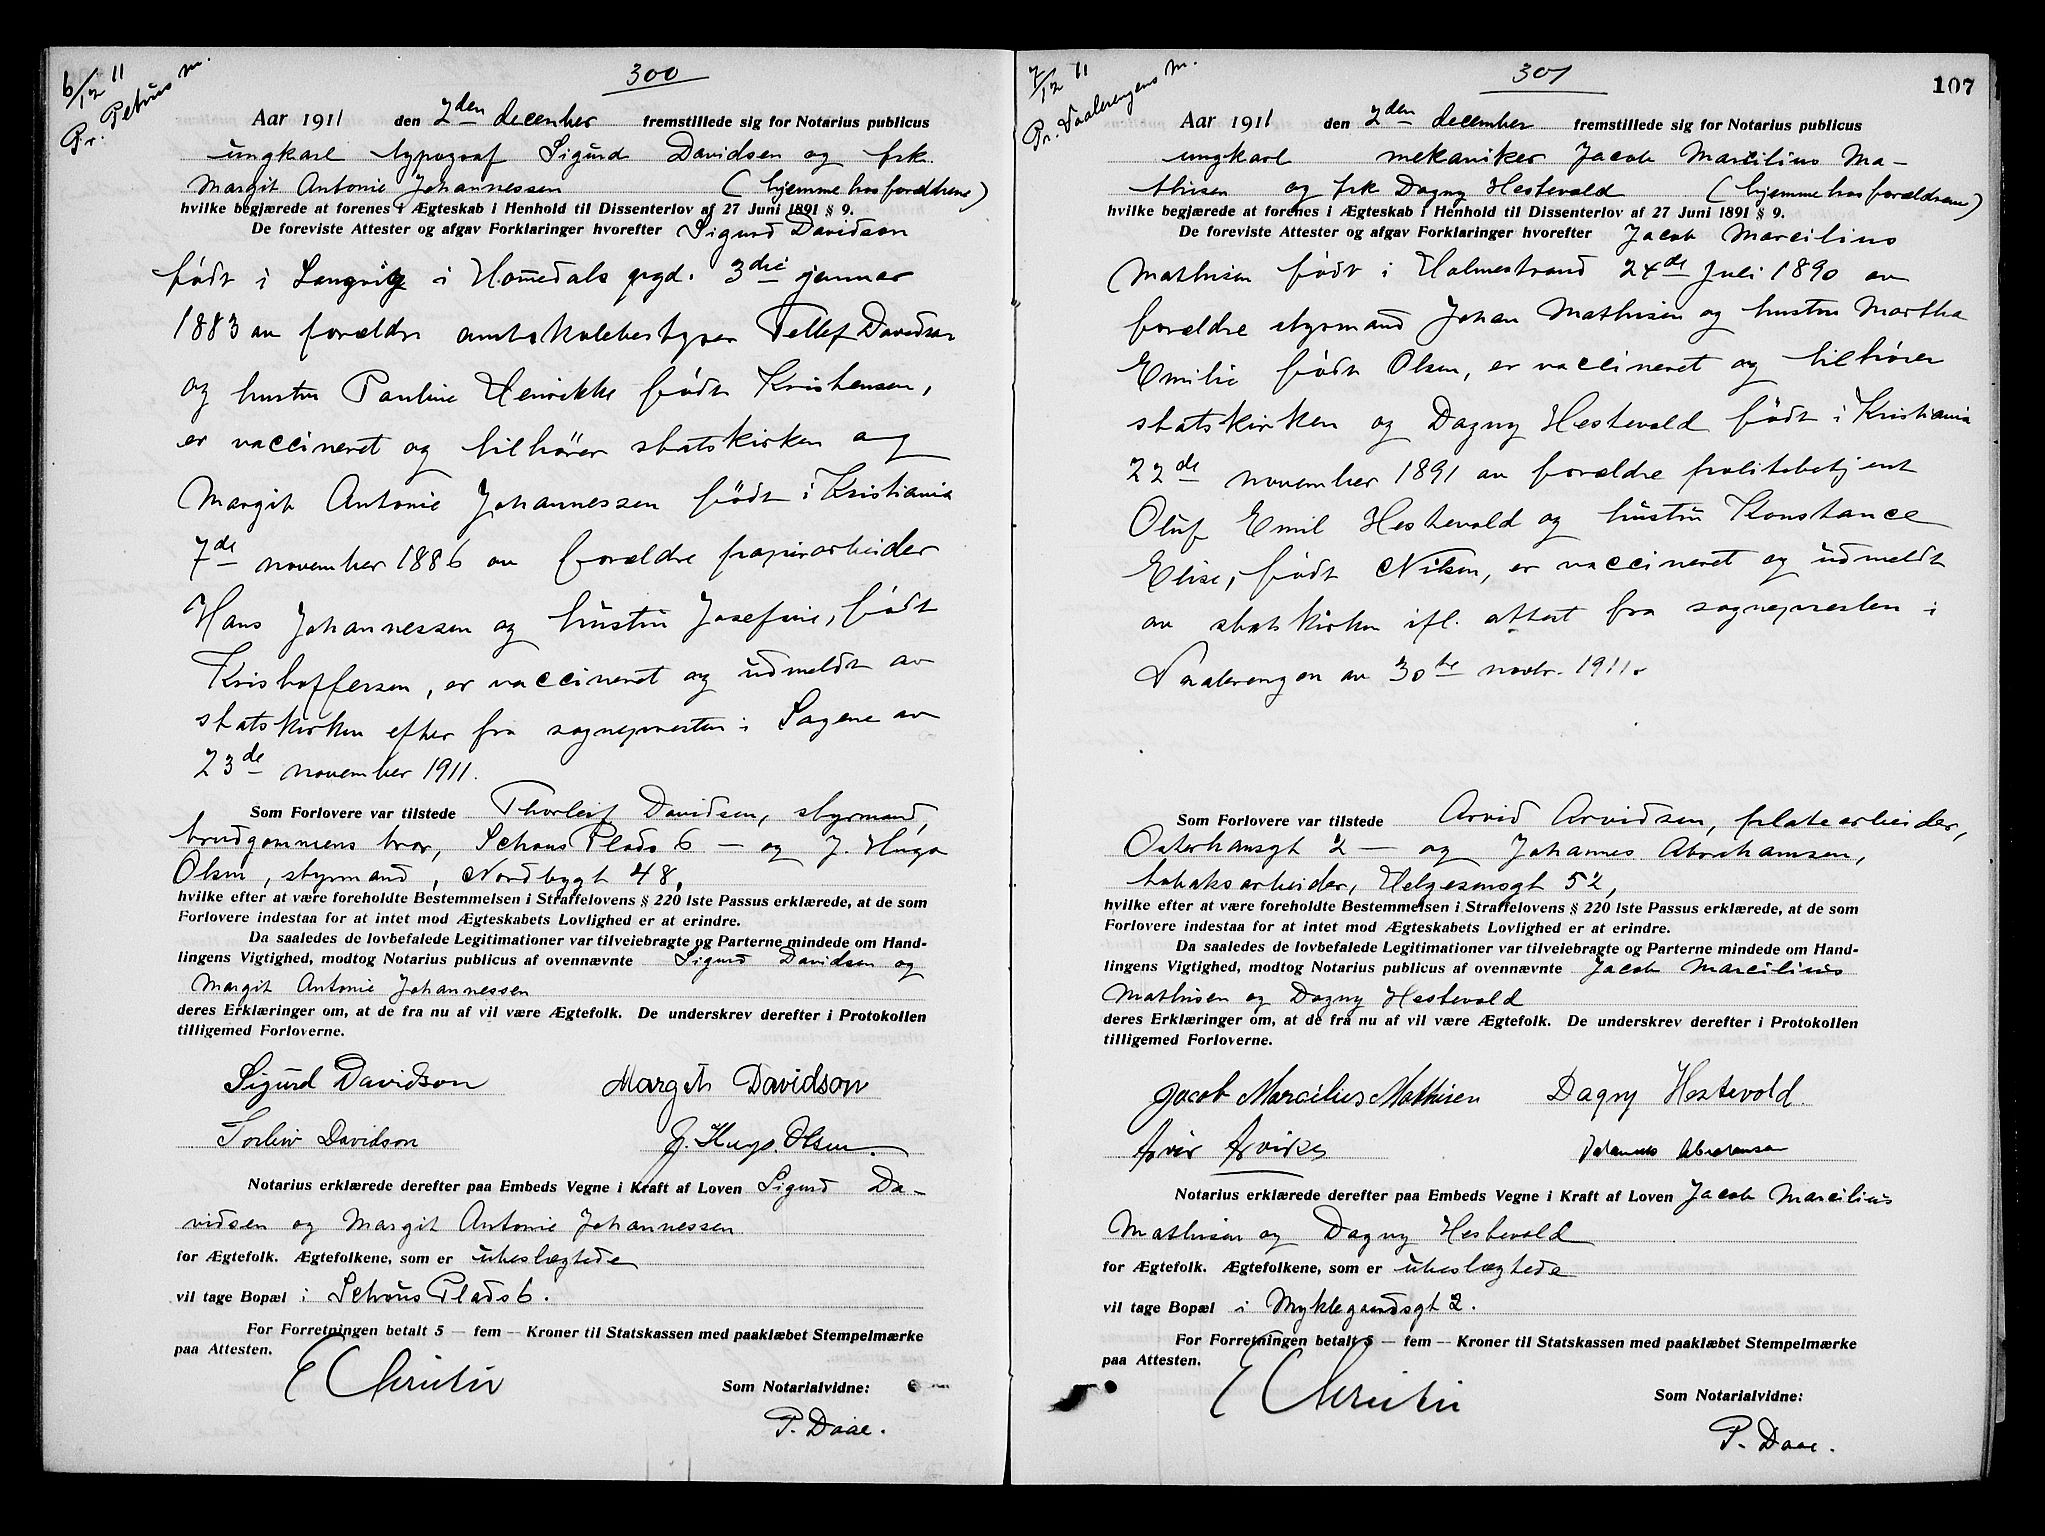 6/12 11
Pr. Petrus m.
300
Aar 1911 den 2den december fremstillede sig for Notarius publicus
ungkarl typograf Sigurd Davidsen og frk.
Margit Antonie Johannessen (hjemme hos forældrene)
hvilke begjærede at forenes i Ægteskab i Henhold til Dissenterlov af 27 Juni 1891 § 9.
De foreviste Attester og afgav Forklaringer hvorefter Sigurd Davidson
født i i Homedals prgd. 3die januar
1883 av forældre amtskolebestyrer Tellef Davidsen
og hustru Pauline Henrikke født Kristensen,
er vaccineret og tilhører statskirken og
Margit Antonie Johannessen født i Kristiania
7de november 1886 av forældre papirarbeider
Hans Johannessen og hustru Josefine, født
Kristoffersen, er vaccineret og udmeldt av
statskirken efter fra sognepresten i Sagene av
23de november 1911.
Som Forlovere var tilstede Thorleif Davidsen, styrmand,
brudgommens bror, Schous Plads 6 — og J. Hugo
Olsen, styrmand, Nordbygt 48,
hvilke efter at være foreholdte Bestemmelsen i Straffelovens § 220 1ste Passus erklærede, at de som
Forlovere indestaa for at intet mod Ægteskabets Lovlighed er at erindre.
Da saaledes de lovbefalede Legitimationer var tilveiebragte og Parterne mindede om Hand-
lingens Vigtighed, modtog Notarius publicus af ovennævnte Sigurd Davidsen og
Margit Antonie Johannessen
deres Erklæringer om, at de fra nu af vil være Ægtefolk. De underskrev derefter i Protokollen
tilligemed Forloverne.
Sigurd Davidson Margit Davidson
Davidson J. Hugo. Olsen.
Notarius erklærede derefter paa Embeds Vegne i Kraft af Loven Sigurd Da-
vidsen og Margit Antonie Johannessen
for Ægtefolk. Ægtefolkene, som er ubeslægtede
vil tage Bopæl i Schous Plads 6.
For Forretningen betalt 5 — fem — Kroner til Statskassen med paaklæbet Stempelmærke
paa Attesten.
Som Notarialvidne:
P. Daae.
7/12 11
Pr. Vaalerengens m.
301
107
Aar 1911 den 2den december fremstillede sig for Notarius publicus
ungkarl mekaniker Jacob Marcilius Ma-
thisen og frk Dagny Hestevold (hjemme hos forældrene)
hvilke begjærede at forenes i Ægteskab i Henhold til Dissenterlov af 27 Juni 1891 § 9.
De foreviste Attester og afgav Forklaringer hvorefter Jacob Marcilius
Mathisen født i Holmestrand 24de juli 1890 av
forældre styrmand Johan Mathisen og hustru Martha
Emilie født Olsen, er vaccineret og tilhører
statskirken og Dagny Hestevold født i Kristiania
22de november 1891 av forældre politibetjent
Oluf Emil Hestevold og hustru Konstance
Elise, født Nilsen, er vaccineret og udmeldt
av statskirken ifl. attest fra sognepresten i
Vaalerengen av 30te novbr. 1911.
Som Forlovere var tilstede Arvid Arvidsen, platearbeider,
Osterhausgt 2 — og Johannes Abrahamsen,
tobaksarbeider, Helgesensgt 52,
hvilke efter at være foreholdte Bestemmelsen i Straffelovens § 220 1ste Passus erklærede, at de som
Forlovere indestaa for at intet mod Ægteskabets Lovlighed er at erindre.
Da saaledes de lovbefalede Legitimationer var tilveiebragte og Parterne mindede om Hand-
lingens Vigtighed, modtog Notarius publicus af ovennævnte Jacob Marcilius
Mathisen og Dagny Hestevold
deres Erklæringer om, at de fra nu af vil være Ægtefolk. De underskrev derefter i Protokollen
tilligemed Forloverne.
Jacob Marcelius Mathisen Dagny Hestevold.
Notarius erklærede derefter paa Embeds Vegne i Kraft af Loven Jacob Marcilius
Mathisen og Dagny Hestevold
for Ægtefolk. Ægtefolkene, som er ubeslægtede
vil tage Bopæl i Myklegaardsgt 2.
For Forretningen betalt 5 — fem — Kroner til Statskassen med paaklæbet Stempelmærke
paa Attesten.
Som Notarialvidne:
P. Daae.